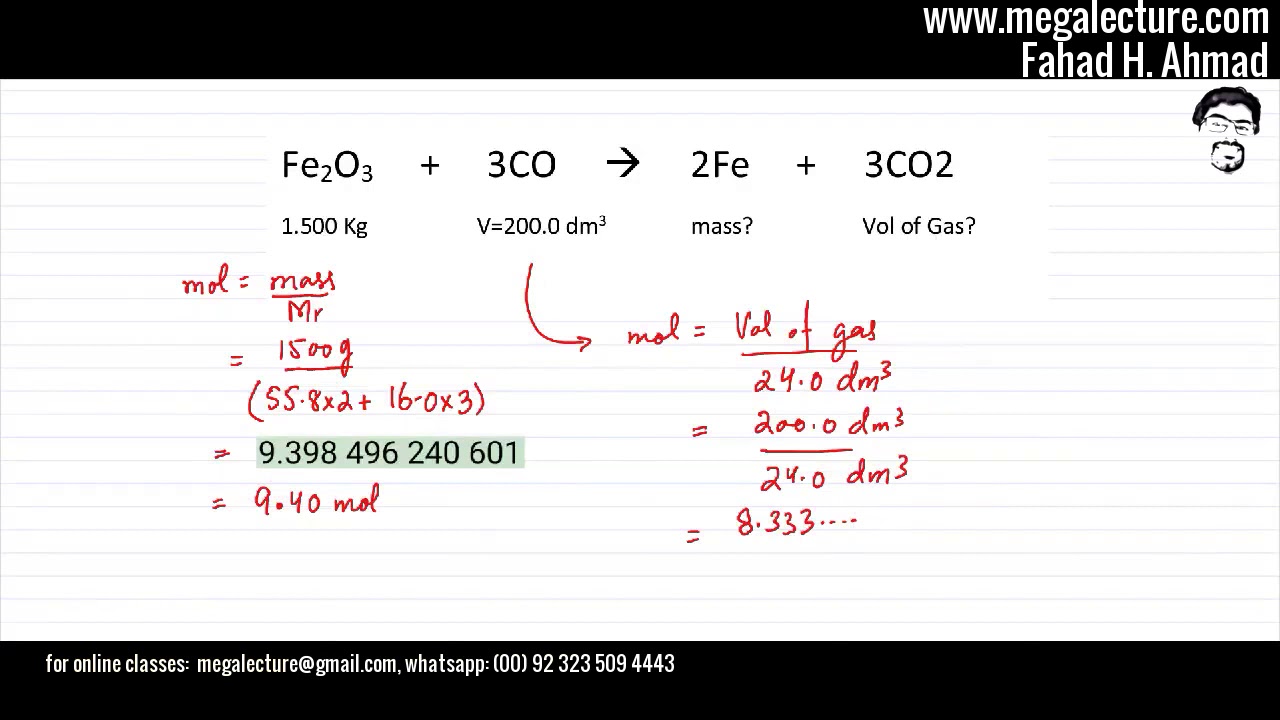 www.megalecture.com
Fahad H. Ahmad
Fe₂O₃ + 3CO → 2Fe + 3CO2
1.500 Kg V=200.0 dm³ mass? Vol of Gas?
mol = mass
Mr
= 1500g
(55.8x2 + 16.0x3)
= 9.398 496 240 601
= 9.40 mol
mol = Vol of gas
24.0 dm³
= 200.0 dm³
24.0 dm³
= 8.333....
for online classes: megalecture@gmail.com, whatsapp: (00) 92 323 509 4443